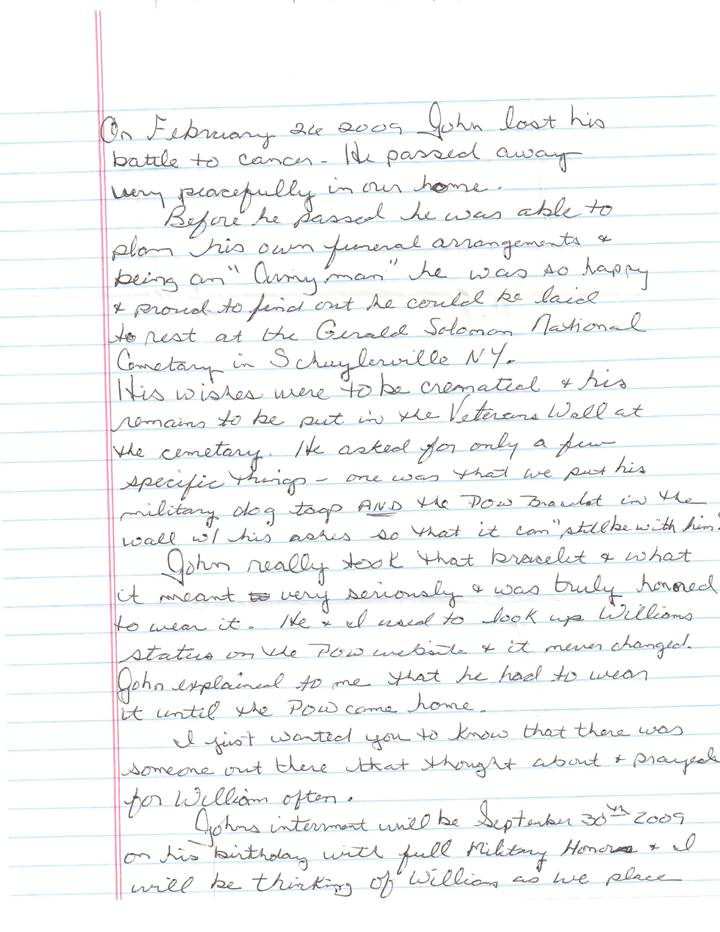 On February 26 2009 John lost his
battle to cancer - He passed away
very peacefully in our home.
Before he passed he was able to
plan his own funeral arrangements &
being an "Army man" he was so happy
& proud to find out he could be laid
to rest at the Gerald Solomon National
Cemetary in Schuylerville NY.
His wishes were to be cremated & his
remains to be put in the Veterans Wall at
the cemetary. He asked for only a few
specific things - one was that we put his
military dog tags AND the POW Bracelet in the
wall w/ his ashes so that it can "still be with him"
John really took that bracelet & what
it meant to very seriously & was truly honored
to wear it. He & I used to look up Williams
status on the POW website & it never changed.
John explained to me that he had to wear
it until the POW came home.
I just wanted you to know that there was
someone out there that thought about & prayed
for William often.
Johns interment will be September 30th 2009
on his birthday with full Military Honors & I
will be thinking of William as we place